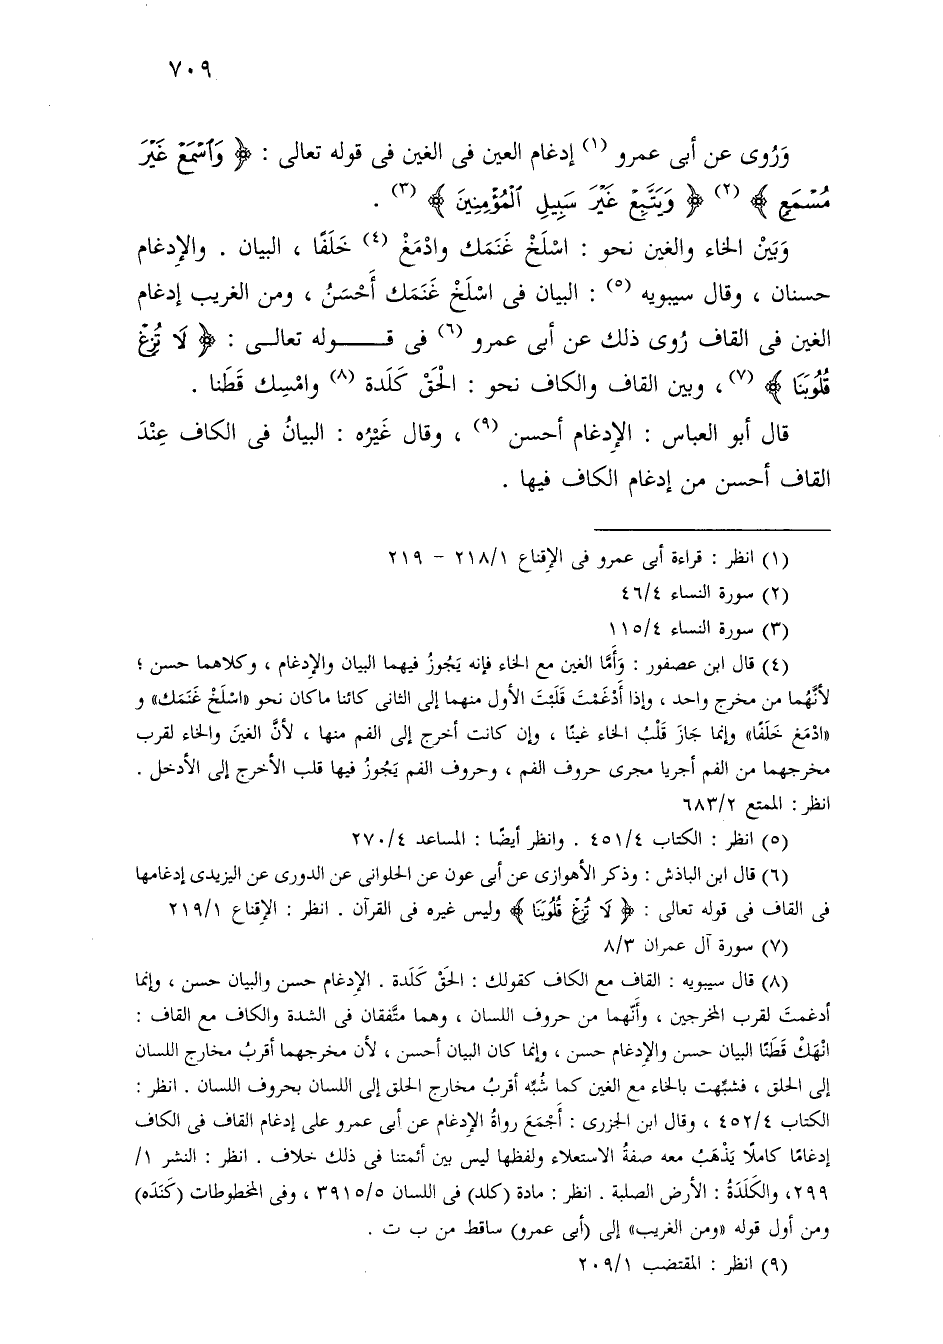 ٧٠٩
وَرُوى عن أبى عمرو (١) إدغام العين فى الغين فى قوله تعالى : ﴿ وَٱسْمَعْ غَيْرَ
مُسْمَعٍ ﴾ (٢) ﴿ وَيَتَّبِعْ غَيْرَ سَبِيلِ ٱلْمُؤْمِنِينَ ﴾ (٣) .
وَبَيْنْ الخاء والغين نحو : اسْلَخْ غَنَمَك وادْمَغْ (٤) خَلَفًا ، البيان . والإدغام
حسنان ، وقال سيبويه (٥) : البيان فى اسْلَخْ غَنَمَك أَحْسَنُ ، ومن الغريب إدغام
الغين فى القاف رُوى ذلك عن أبى عمرو (٦) فى قـــــوله تعالـى : ﴿ لَا تُزِغْ
قُلُوبَنَا ﴾ (٧) ، وبين القاف والكاف نحو : الْحَقْ كَلَدة (٨) وامْسِك قَطَنا .
قال أبو العباس : الإدغام أحسن (٩) ، وقال غَيْرُه : البيانُ فى الكاف عِنْدَ
القاف أحسن من إدغام الكاف فيها .
(١) انظر : قراءة أبى عمرو فى الإقناع ٢١٨/١ – ٢١٩
(٢) سورة النساء ٤٦/٤
(٣) سورة النساء ١١٥/٤
(٤) قال ابن عصفور : وَأَمَّا الغين مع الخاء فإنه يَجُوزُ فيهما البيان والإدغام ، وكلاهما حسن ؛
لأنَّهُما من مخرج واحد ، وإذا أَدْغَمْتَ قَلَبْتَ الأول منهما إلى الثانى كائنا ماكان نحو «اسْلَخْ غَنَمَك» و
«ادْمَغ خَلَفًا» وإنما جَازَ قَلْبُ الخاء غينًا ، وإن كانت أخرج إلى الفم منها ، لأنَّ الغينَ والخاء لقرب
مخرجهما من الفم أجريا مجرى حروف الفم ، وحروف الفم يَجُوزُ فيها قلب الأخرج إلى الأدخل .
انظر : الممتع ٦٨٣/٢
(٥) انظر : الكتاب ٤٥١/٤ . وانظر أيضًا : المساعد ٢٧٠/٤
(٦) قال ابن الباذش : وذكر الأهوازى عن أبى عون عن الحلوانى عن الدورى عن اليزيدى إدغامها
فى القاف فى قوله تعالى : ﴿ لَا تُزِغْ قُلُوبَنَا ﴾ وليس غيره فى القرآن . انظر : الإقناع ٢١٩/١
(٧) سورة آل عمران ٨/٣
(٨) قال سيبويه : القاف مع الكاف كقولك : الحَقْ كَلَدة . الإدغام حسن والبيان حسن ، وإنما
أدغمتَ لقرب المخرجين ، وأنَّهما من حروف اللسان ، وهما متَّفقان فى الشدة والكاف مع القاف :
انْهَكْ قَطَنًا البيان حسن والإدغام حسن ، وإنما كان البيان أحسن ، لأن مخرجهما أقربُ مخارج اللسان
إلى الحلق ، فشبِّهت بالخاء مع الغين كما شُبِّه أقربُ مخارج الحلق إلى اللسان بحروف اللسان . انظر :
الكتاب ٤٥٢/٤ ، وقال ابن الجزرى : أَجْمَعَ رواةُ الإدغام عن أبى عمرو على إدغام القاف فى الكاف
إدغامًا كاملًا يَذْهَبُ معه صفةُ الاستعلاء ولفظها ليس بين أئمتنا فى ذلك خلاف . انظر : النشر ١/
٢٩٩، والكَلَدَةُ : الأرض الصلبة . انظر : مادة (كلد) فى اللسان ٣٩١٥/٥ ، وفى المخطوطات (كَنَدَه)
ومن أول قوله «ومن الغريب» إلى (أبى عمرو) ساقط من ب ت .
(٩) انظر : المقتضب ٢٠٩/١